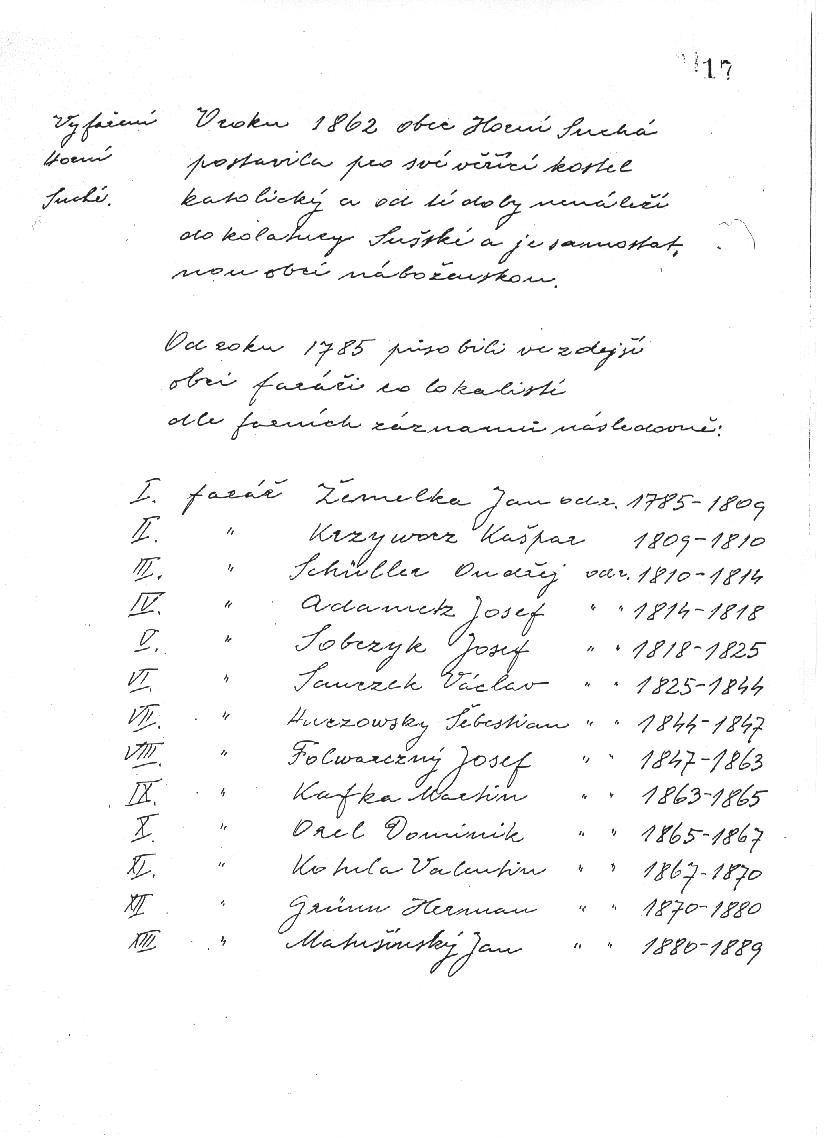 17
Vyfaření
Horní
Suché.
V roku 1862 obec Horní Suchá
postavila pro své věřící kostel
katolický a od té doby nenáleží
do kolatury Sušské a je samostat,
nou obcí náboženskou.
Od roku 1785 působili ve zdejší
obci faráři co lokalisté
dle farních záznamů následovně:
I. farář Žemelka Jan odr. 1785-1809
II. " Krzyworz Kašpar 1809-1810
III. " Schüller Ondřej odr. 1810-1814
IV. " Adametz Josef " " 1814-1818
V. " Sobczyk Josef " " 1818-1825
VI. " Václav " " 1825-1844
VII. " Šebestian " " 1844-1847
VIII. " Folwarczný Josef " " 1847-1863
IX. " Kafka Martin " " 1863-1865
X. " Orel Dominik " " 1865-1867
XI. " Kotula Valentin " " 1867-1870
XII " Grünn Herman " " 1870-1880
XIII. " Matušínský Jan " " 1880-1889